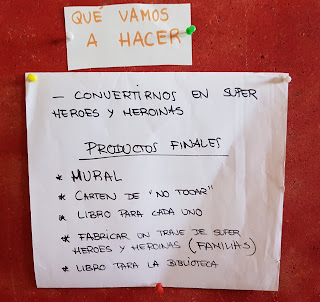 QUÉ VAMOS
A HACER
- CONVERTIRNOS EN SUPER
HEROES Y HEROINAS
PRODUCTOS FINALES
* MURAL
* CARTEN DE "NO TOCAR"
* LIBRO PARA CADA UNO
* FABRICAR UN TRAJE DE SUPER
HEROES Y HEROINAS (FAMILIAS)
* LIBRO PARA LA BIBLIOTECA